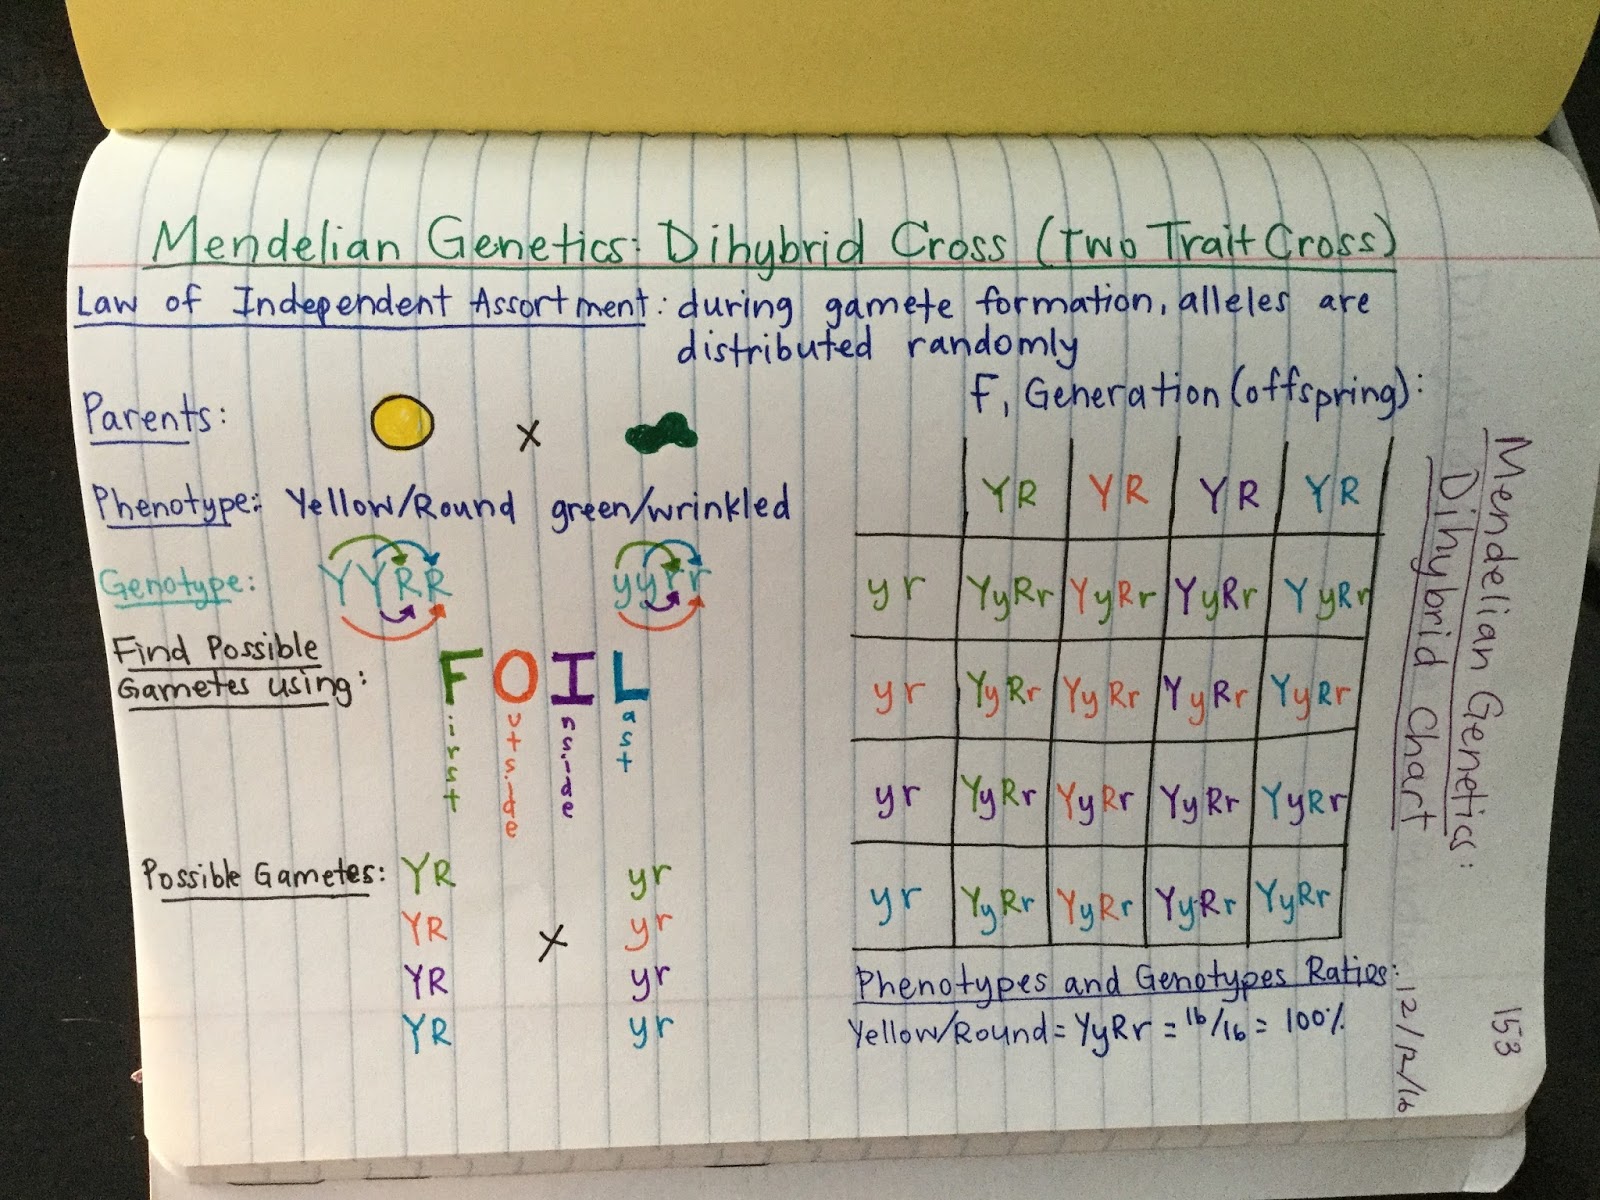 Mendelian Genetics: Dihybrid Cross (Two Trait Cross)
Law of Independent Assortment: during gamete formation, alleles are
distributed randomly
Parents: X
Phenotype: Yellow/Round green/wrinkled
Genotype: YYRR yyrr
Find Possible
Gametes using:
FOIL
First
Outside
Inside
Last
Possible Gametes: YR yr
YR yr
X
YR yr
YR yr
F1 Generation (offspring):
YR YR YR YR
yr YyRr YyRr YyRr YyRr
yr YyRr YyRr YyRr YyRr
yr YyRr YyRr YyRr YyRr
yr YyRr YyRr YyRr YyRr
Phenotypes and Genotypes Ratios:
Yellow/Round = YyRr = 16/16 = 100%
Mendelian Genetics:
Dihybrid Chart
153
12/12/16